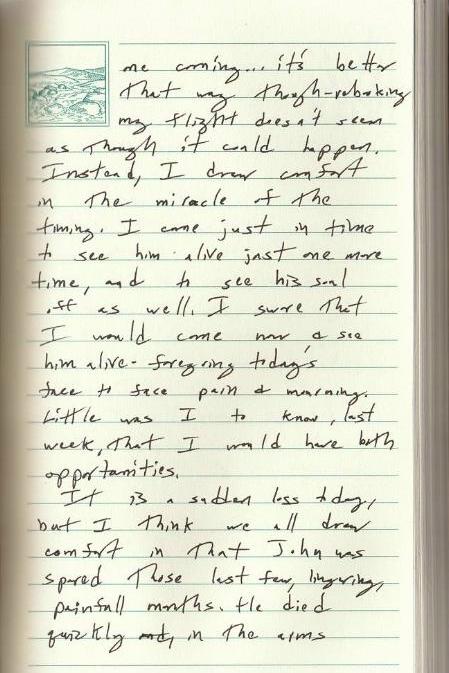 me coming... it's better
that way though - rebooking
my flight doesn't seem
as though it could happen.
Instead, I draw comfort
in the miracle of the
timing. I came just in time
to see him alive just one more
time, and to see his soul
off as well. I swore that
I would come now & see
him alive - foregoing today's
face to face pain & mourning.
Little was I to know, last
week, that I would have both
opportunities.
It is a sudden loss today,
but I think we all draw
comfort in that John was
spared those last few, lingering,
painfull months. He died
quickly and, in the arms